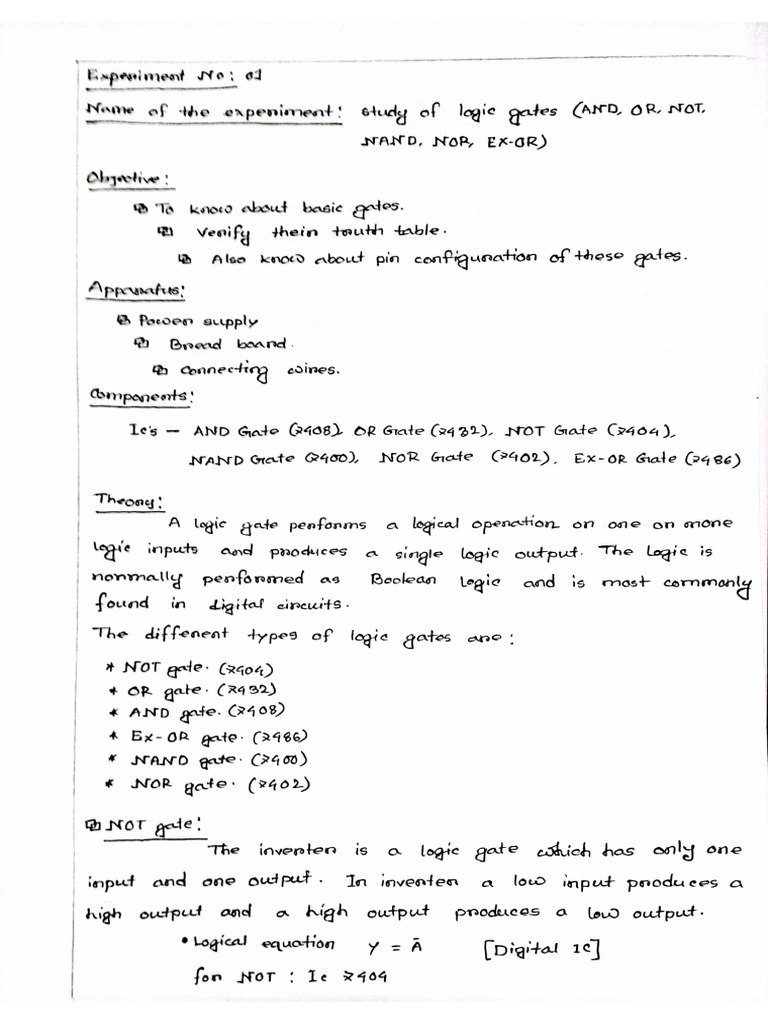 Experiment No: 01
Name of the experiment: study of logic gates (AND, OR, NOT,
NAND, NOR, EX-OR)
Objective:
To know about basic gates.
Verify their truth table.
Also know about pin configuration of these gates.
Apparatus:
Power supply
Bread board.
Connecting wires.
Components:
Ic's — AND Gate (7408), OR Gate (7432), NOT Gate (7404),
NAND Gate (7400), NOR Gate (7402), EX-OR Gate (7486)
Theory:
A logic gate performs a logical operation on one or more
logic inputs and produces a single logic output. The Logic is
normally performed as Boolean Logic and is most commonly
found in digital circuits.
The different types of logic gates are:
* NOT gate. (7404)
* OR gate. (7432)
* AND gate. (7408)
* Ex-OR gate. (7486)
* NAND gate. (7400)
* NOR gate. (7402)
NOT gate:
The inverter is a logic gate which has only one
input and one output. In inverter a low input produces a
high output and a high output produces a low output.
• Logical equation Y = Ā [Digital IC]
for NOT : Ic 7404